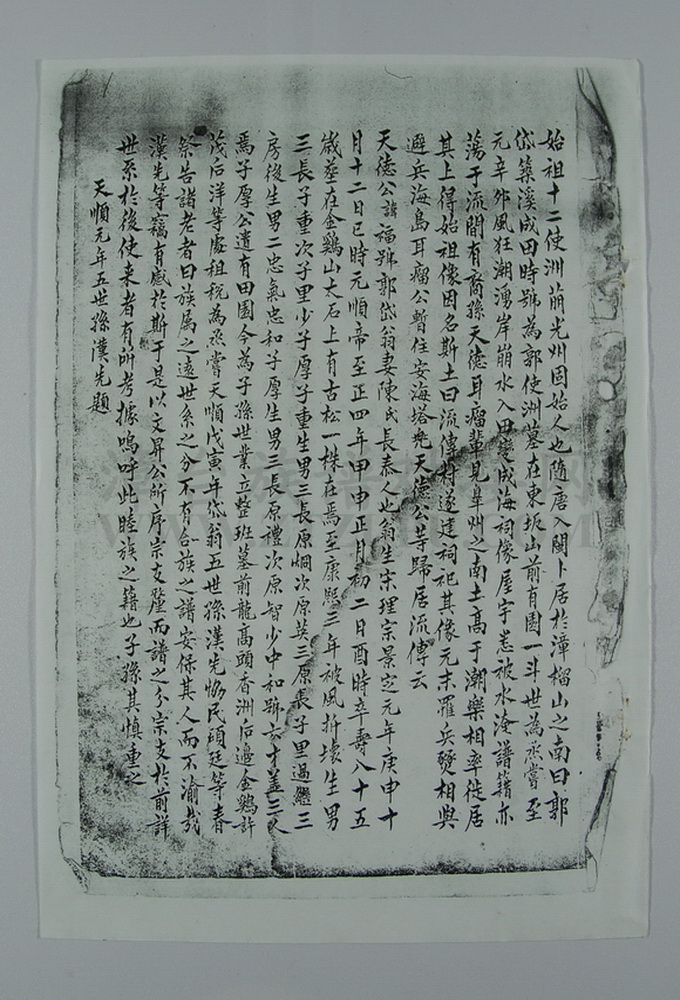 始祖十二使洲前光州固始人也隨唐入閩卜居於漳榴山之南曰郭
岱築溪成田時號為郭使洲墓在東坂山前有園一斗世為烝嘗至
元辛卯風狂潮湧岸崩水入田變成海祠像屋宇悉被水淹譜籍亦
蕩于流間有裔孫天德耳瘤輩見阜州之南土高于潮樂相率徙居
其上得始祖像因名斯土曰流傳村遂建祠祀其像元末罹兵燹相與
避兵海島耳瘤公暫住安海塔兜天德公等歸居流傳云
天德公諱福號郭岱翁妻陳氏長泰人也翁生宋理宗景定元年庚申十
月十二日巳時元順帝至正四年甲申正月初二日酉時卒壽八十五
歲葬在金鷄山大石上有古松一株在焉至康熙三年被風折壞生男
三長子重次子里少子厚子重生男三長原烱次原英三原長子里過繼三
房後生男二忠氣忠和子厚生男三長原禮次原智少中和號六才蓋三人
焉子厚公遺有田園今為子孫世業立整班墓前龍高頭香洲后邊金鷄許
茂后洋等處租稅為烝嘗天順戊寅年岱翁五世孫漢先協民頑廷等春
祭告諸老者曰族属之遠世系之分不有合族之譜安保其人而不渝哉
漢先等竊有感於斯于是以文昇公所序宗支釐而譜之分宗支於前詳
世系於後使来者有所考據嗚呼此睦族之籍也子孫其慎重之
天順元年五世孫漢先題